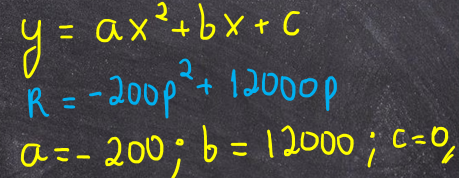 y = ax²+bx+c
R = -200p²+ 12000p
a=- 200; b = 12000; c=0,